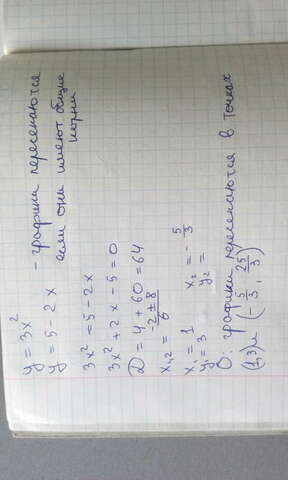 y = 3x² - графики пересекаются
y = 5 - 2x если они имеют общие
корни
3x² = 5 - 2x
3x² + 2x - 5 = 0
D = 4 + 60 = 64
x₁,₂ = (-2 ± 8)/6
x₁ = 1 x₂ = -5/3
y₁ = 3 y₂ =
О: графики пересекаются в точках
(1,3) и (-5/3, 25/3)